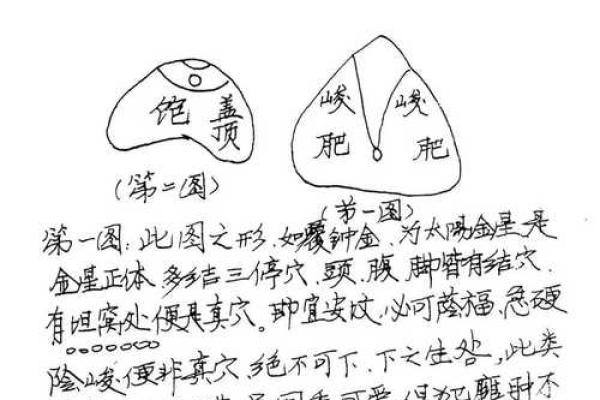 饱 盖
顶
(第二图)
峻 峻
肥 肥
(第一图)
第一图:此图之形.如覆钟金.为太陽金星是
金星正体.多结三停穴.頭.腹.脚皆有结穴.
有坦窝处便是真穴。即宜安坟.必可蔭福.急硬
陰峻便非真穴.绝不可下.下之生咎,此类
可爱.但犯臃肿不